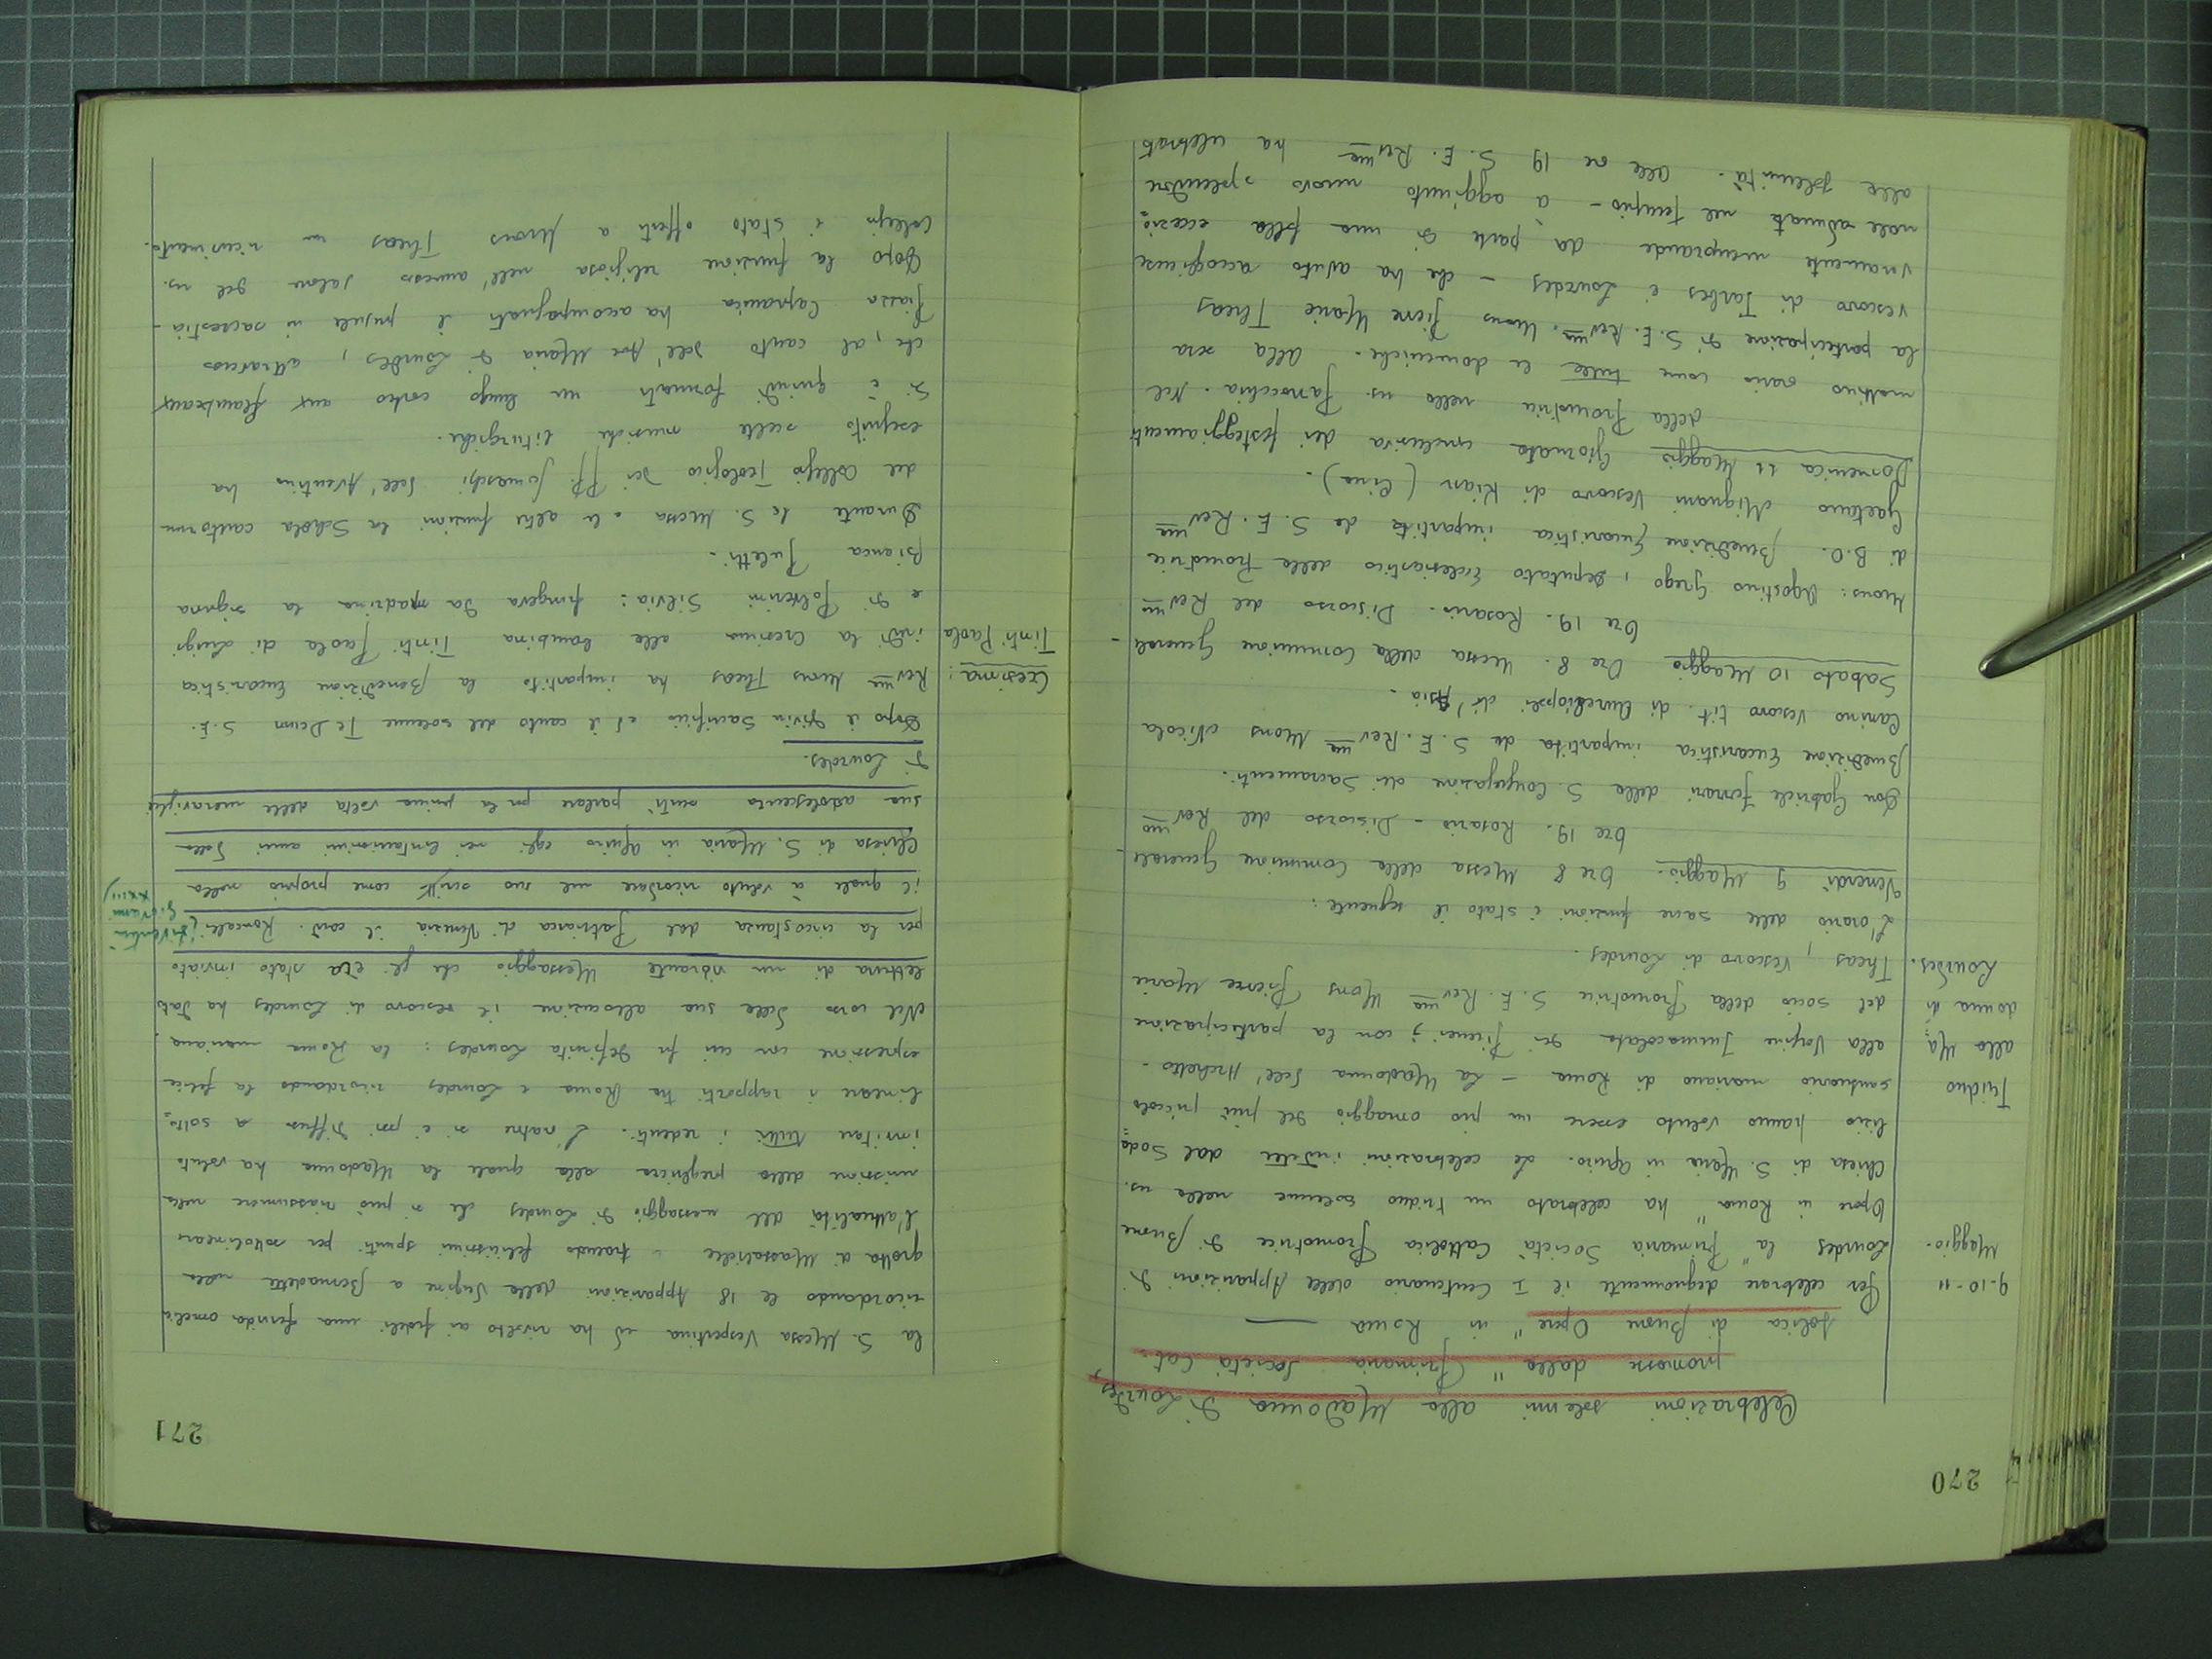 270
Celebrazioni solenni alla Madonna di Lourdes,
promosse dalla "Primaria Società Cat-
tolica di Buone Opere" in Roma
9-10-11 Maggio.
Per celebrare degnamente il I Centenario delle Apparizioni di
Lourdes la "Primaria Società Cattolica Promotrice di Buone
Opere in Roma" ha celebrato un triduo solenne nella ns.
Chiesa di S. Maria in Aquiro. Le celebrazioni indette dal Soda=
lizio hanno voluto essere un pio omaggio del più piccolo
Triduo alla Ma=donna di Lourdes.
santuario mariano di Roma - La Madonna dell'Archetto -
alla Vergine Immacolata dei Pirenei; con la partecipazione
del socio della Promotrice S. E. Revma Mons Pierre Marie
Theas, Vescovo di Lourdes.
L'orario delle sacre funzioni è stato il seguente:
Venerdì 9 Maggio. Ore 8 Messa della Comunione Generale -
Ore 19. Rosario - Discorso del Revmo
Don Gabriele Ferrari della S. Congregazione dei Sacramenti.
Benedizione Eucaristica impartita da S. E. Revma Mons Nicola
Canino Vescovo tit. di Aureliopoli di Asia.
Sabato 10 Maggio Ore 8. Messa della Comunione Generale -
Ore 19. Rosario. Discorso del Revmo
Mons: Agostino Grego, deputato Ecclesiastico della Promotrice
di B.O. Benedizione Eucaristica impartita da S. E. Revma
Gaetano Mignani Vescovo di Kian (Cina).
Domenica 11 Maggio Giornata conclusiva dei festeggiamenti
della Promotrice nella ns. Parrocchia. Nel
mattino orario come tutte le domeniche. Alla sera
la partecipazione di S. E. Revma. Mons Pierre Marie Theas
vescovo di Tarbes e Lourdes - che ha avuto accoglienze
vivamente da parte di una folla eccezio=
nale adunata nel tempio - à aggiunto nuovo splendore
alle solennità. Alle ore 19 S. E. Revma ha celebrato
271
la S. Messa Vespertina ed ha rivolto ai fedeli una fervida omelia
ricordando le 18 Apparizioni della Vergine a Bernadette nella
grotta di Massabielle e traendo felicissimi spunti per sottolineare
l'attualità del messaggio di Lourdes che si può riassumere nella
missione della preghiera alla quale la Madonna ha voluto
invitare tutti i redenti. L'oratore si è poi diffuso a sotto=
lineare i rapporti tra Roma e Lourdes ricordando la felice
espressione con cui fu definita Lourdes: la Roma mariana.
Nel corso della sua allocuzione il vescovo di Lourdes ha dato
lettura di un vibrante Messaggio che gli era stato inviato
per la circostanza dal Patriarca di Venezia il card. Roncalli (diventò Giovanni XXIII)
il quale à voluto ricordare nel suo scritto come proprio nella
Chiesa di S. Maria in Aquiro egli nei lontanissimi anni della
sua adolescenza sentì parlare per la prima volta delle meraviglie
di Lourdes.
Dopo il divin Sacrificio ed il canto del solenne Te Deum S. E.
Cresima: Tinti Paola
Revma Mons Theas ha impartito la Benedizione Eucaristica
indi la Cresima alla bambina Tinti Paola di Luigi
e di Polverini Silvia: fungeva da madrina la signora
Bianca
Durante la S. Messa e le altre funzioni la Schola cantorum
del Collegio Teologico dei PP. Somaschi dell'Aventino ha
eseguito scelte musiche liturgiche.
Si è quindi formato un lungo corteo aux flambeaux
che, al canto dell'Ave Maria di Lourdes, attraverso
piazza Capranica ha accompagnato il presule in sacrestia -
Dopo la funzione religiosa nell'annesso salone del ns.
Collegio è stato offerto a Mons Theas un ricevimento.